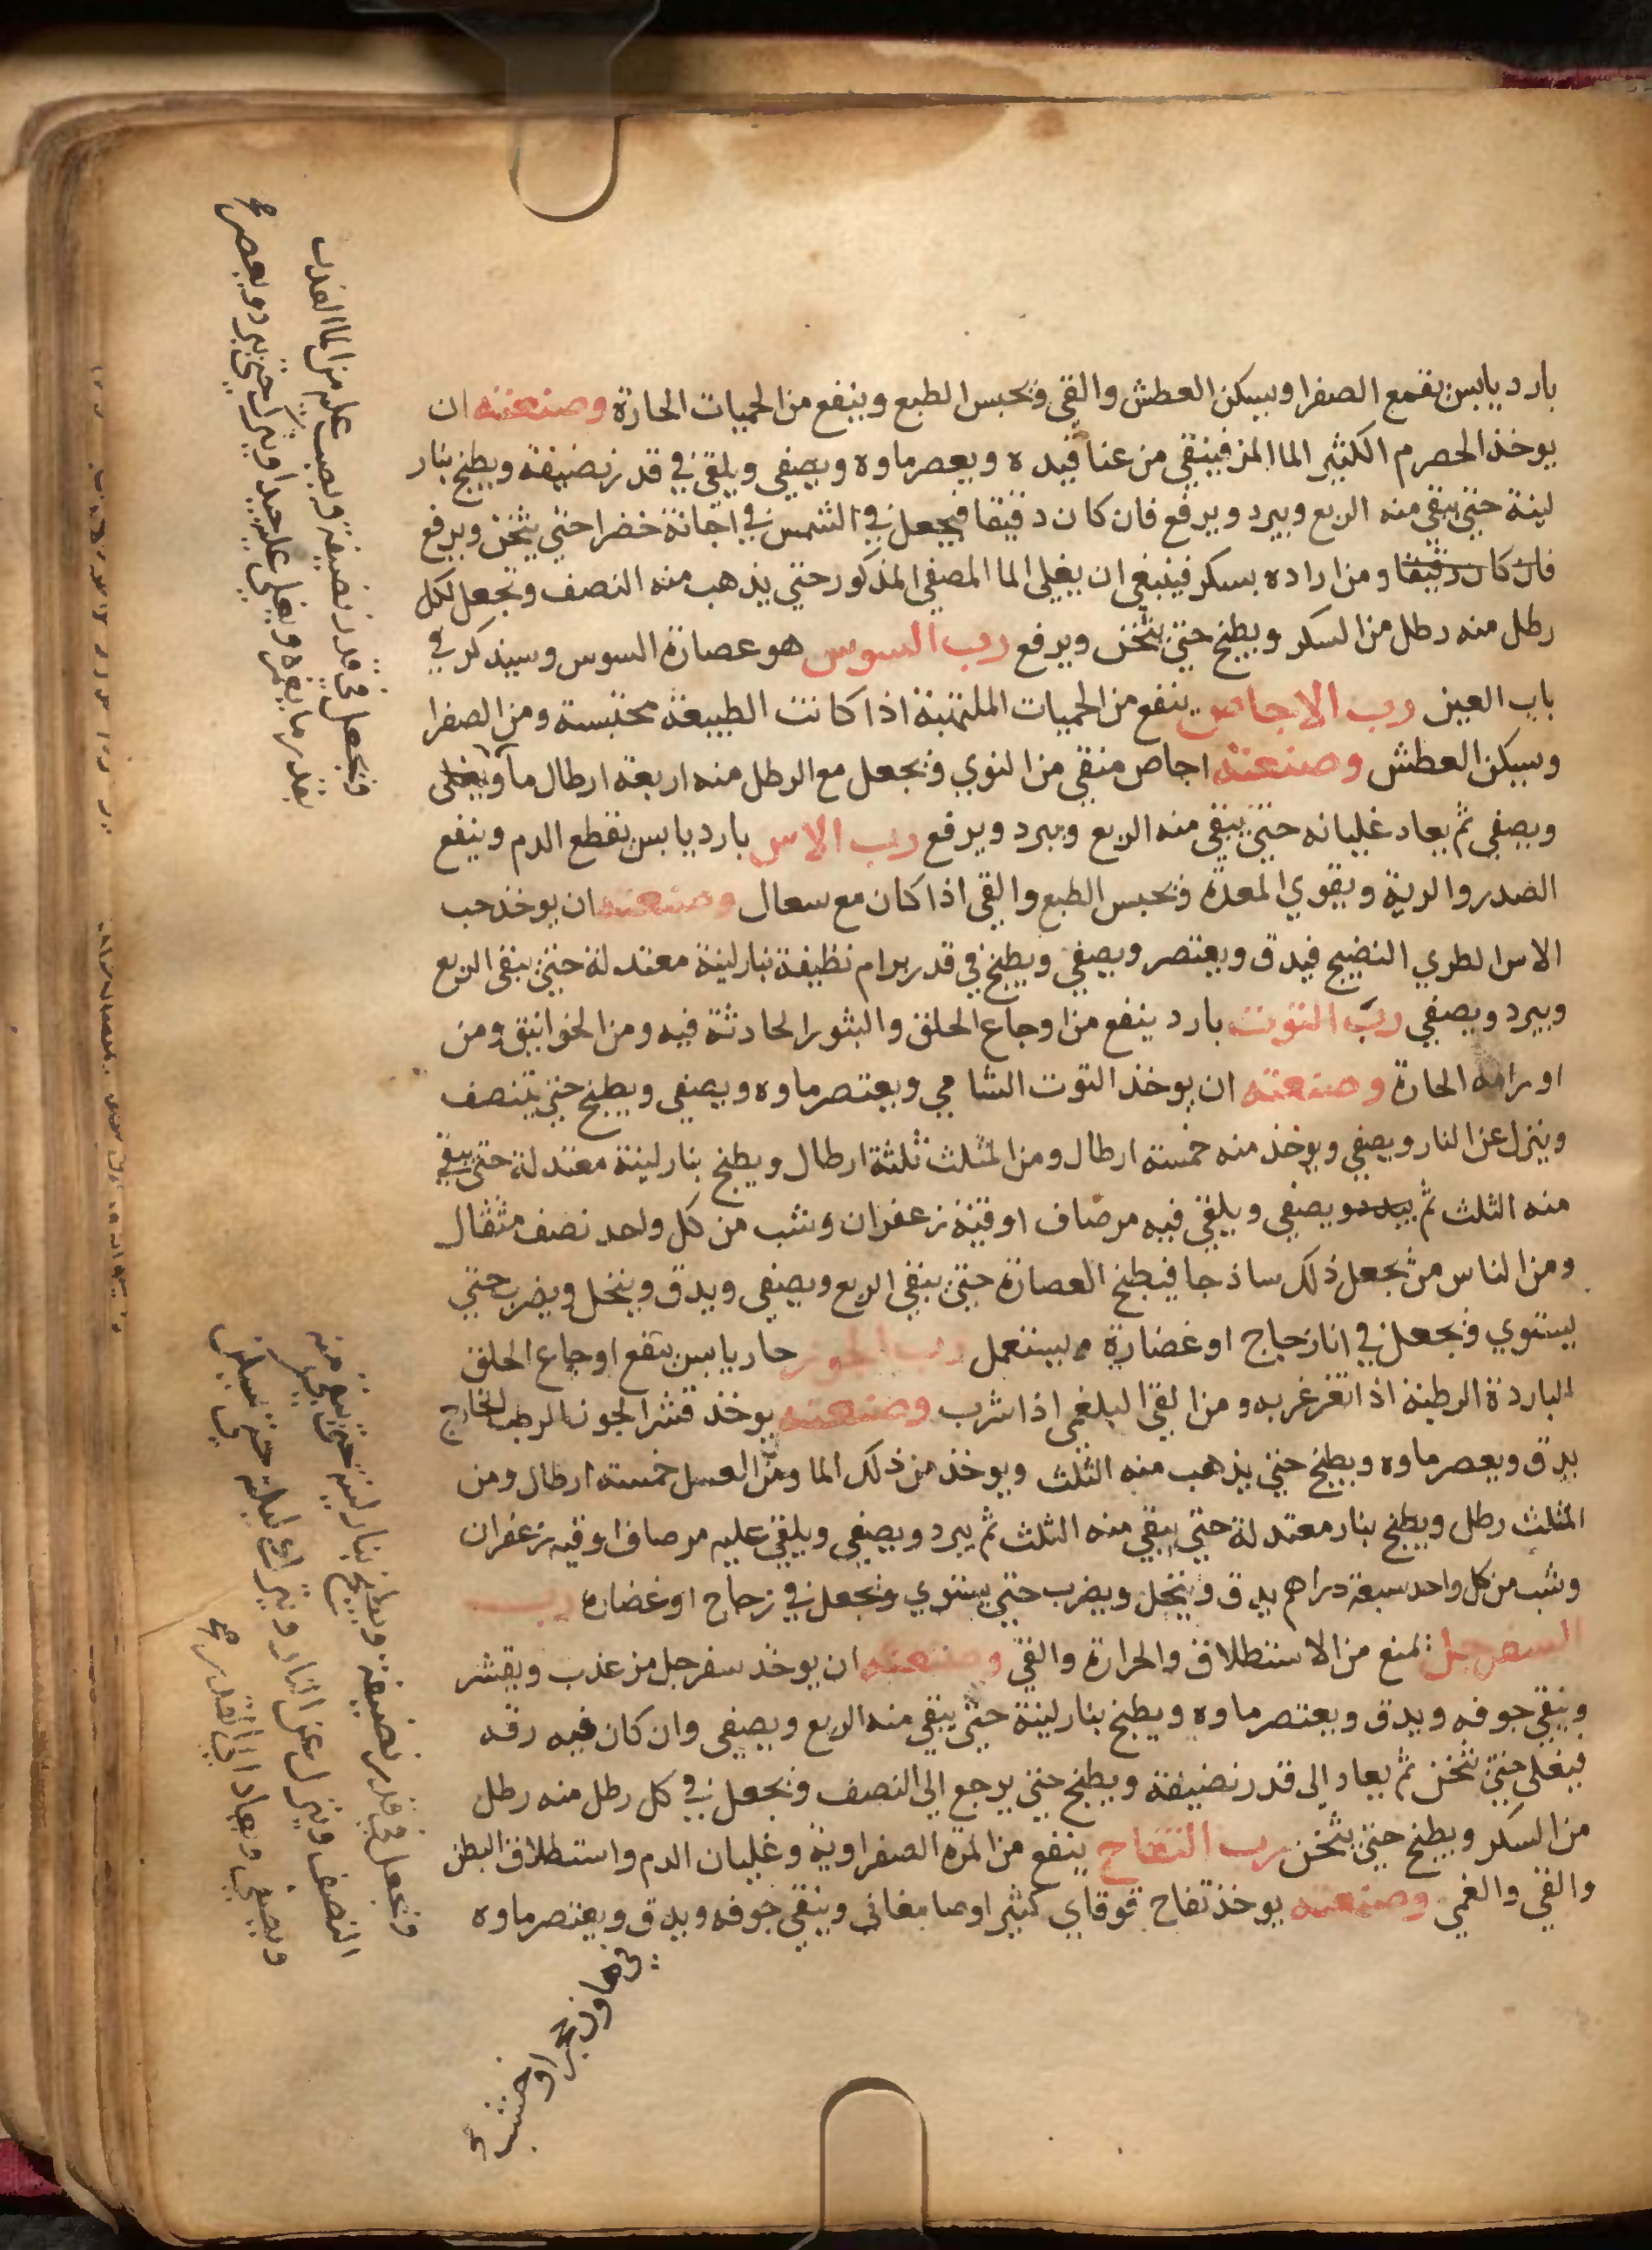 بارد يابس يقمع الصفرا ويسكن العطش والقي ويحبس الطبع وينفع من الحميات الحارة وصنعته ان
يوخذ الحصرم الكثير الما المز فينقي من عناقيده ويعصر ماوه ويصفي ويلقي في قدر نضيفة ويطبخ بنار
لينة حتي يبقي منه الربع ويبرد ويرفع فان كان دقيقا فيجعل في الشمس في اجانة خضرا حتي يثخن ويرفع
فان كان دقيقا ومن اراده بسكر فينبغي ان يغلي الما المصفي المذكور حتي يذهب منه النصف ويجعل لكل
رطل منه رطل من السكر ويطبخ حتي يثخن ويرفع رب السوس هو عصارة السوس وسيذكر في
باب العين رب الاجاص ينفع من الحميات الملتهبة اذا كانت الطبيعة محتبسة ومن الصفرا
ويسكن العطش وصنعته اجاص منقي من النوي ويجعل مع الرطل منه اربعة ارطال ماآ ويغلى
ويصفي ثم يعاد غليانه حتي يبقي منه الربع ويبرد ويرفع رب الاس بارد يابس يقطع الدم وينفع
الصدر والرية ويقوي المعدة ويحبس الطبع والقي اذا كان مع سعال وصنعته ان يوخذ حب
الاس الطري النضيج فيدق ويعتصر ويصفي ويطبخ في قدر برام نظيفة بنار لينة معتدلة حتي يبقى الربع
ويبرد ويصفي رب التوت بارد ينفع من اوجاع الحلق والبثور الحادثة فيه ومن الخوانيق ومن
اورامه الحارة وصنعته ان يوخذ التوت الشامي ويعتصر ماوه ويصفي ويطبخ حتي يتنصف
وينزل عن النار ويصفي ويوخذ منه خمسة ارطال ومن المثلث ثلثة ارطال ويطبخ بنار لينة معتدلة حتي يبقي
منه الثلث ثم يبرد ويصفي ويلقي فيه مر صاف اوقية زعفران وشب من كل واحد نصف مثقال
ومن الناس من يجعل ذلك ساذجا فيطبخ العصارة حتي يبقي الربع ويصفي ويدق وينخل ويضرب حتي
يستوي ويجعل في انا زجاج او غضارة ويستعمل رب الجوز حار يابس ينفع اوجاع الحلق
الباردة الرطبة اذا تغرغر به ومن القي البلغمي اذا شرب وصنعته يوخذ قشر الجوز الرطب الخارج
يدق ويعصر ماوه ويطبخ حتي يذهب منه الثلث ويوخذ من ذلك الما ومن العسل خمسة ارطال ومن
المثلث رطل ويطبخ بنار معتدلة حتي يبقي منه الثلث ثم يبرد ويصفي ويلقي عليه مر صاف اوقيه زعفران
وشب من كل واحد سبعة دراهم يدق وينخل ويضرب حتي يستوي ويجعل في زجاج او غضاره رب
السفرجل يمنع من الاستطلاق والحرارة والقي وصنعته ان يوخذ سفرجل مز عذب ويقشر
وينقي جوفه ويدق ويعتصر ماوه ويطبخ بنار لينة حتي يبقي منه الربع ويصفي وان كان فيه رقه
فيغلي حتي يثخن ثم يعاد الي قدر نضيفة ويطبخ حتي يرجع الي النصف ويجعل في كل رطل منه رطل
من السكر ويطبخ حتي يثخن رب التفاح ينفع من المرة الصفراوية وغليان الدم واستطلاق البطن
والقي والغمي وصنعته يوخذ تفاح قوقاي كثير اوصامغاني وينقي جوفه ويدق ويعتصر ماوه
في هاون حجر او خشب
ويجعل في قدر نضيفة ويصب عليه من الما العذب
بقدر ما يغمره ويغلي عليه جيدا ويترك حتي يبرد ويعصر صح
ويجعل في قدر نضيفة ويطبخ بنار لينة حتي يبقي منه
النصف وينزل عن النار ويترك ليلة حتي يسكن
ويصفي ويعاد الي القدر صح